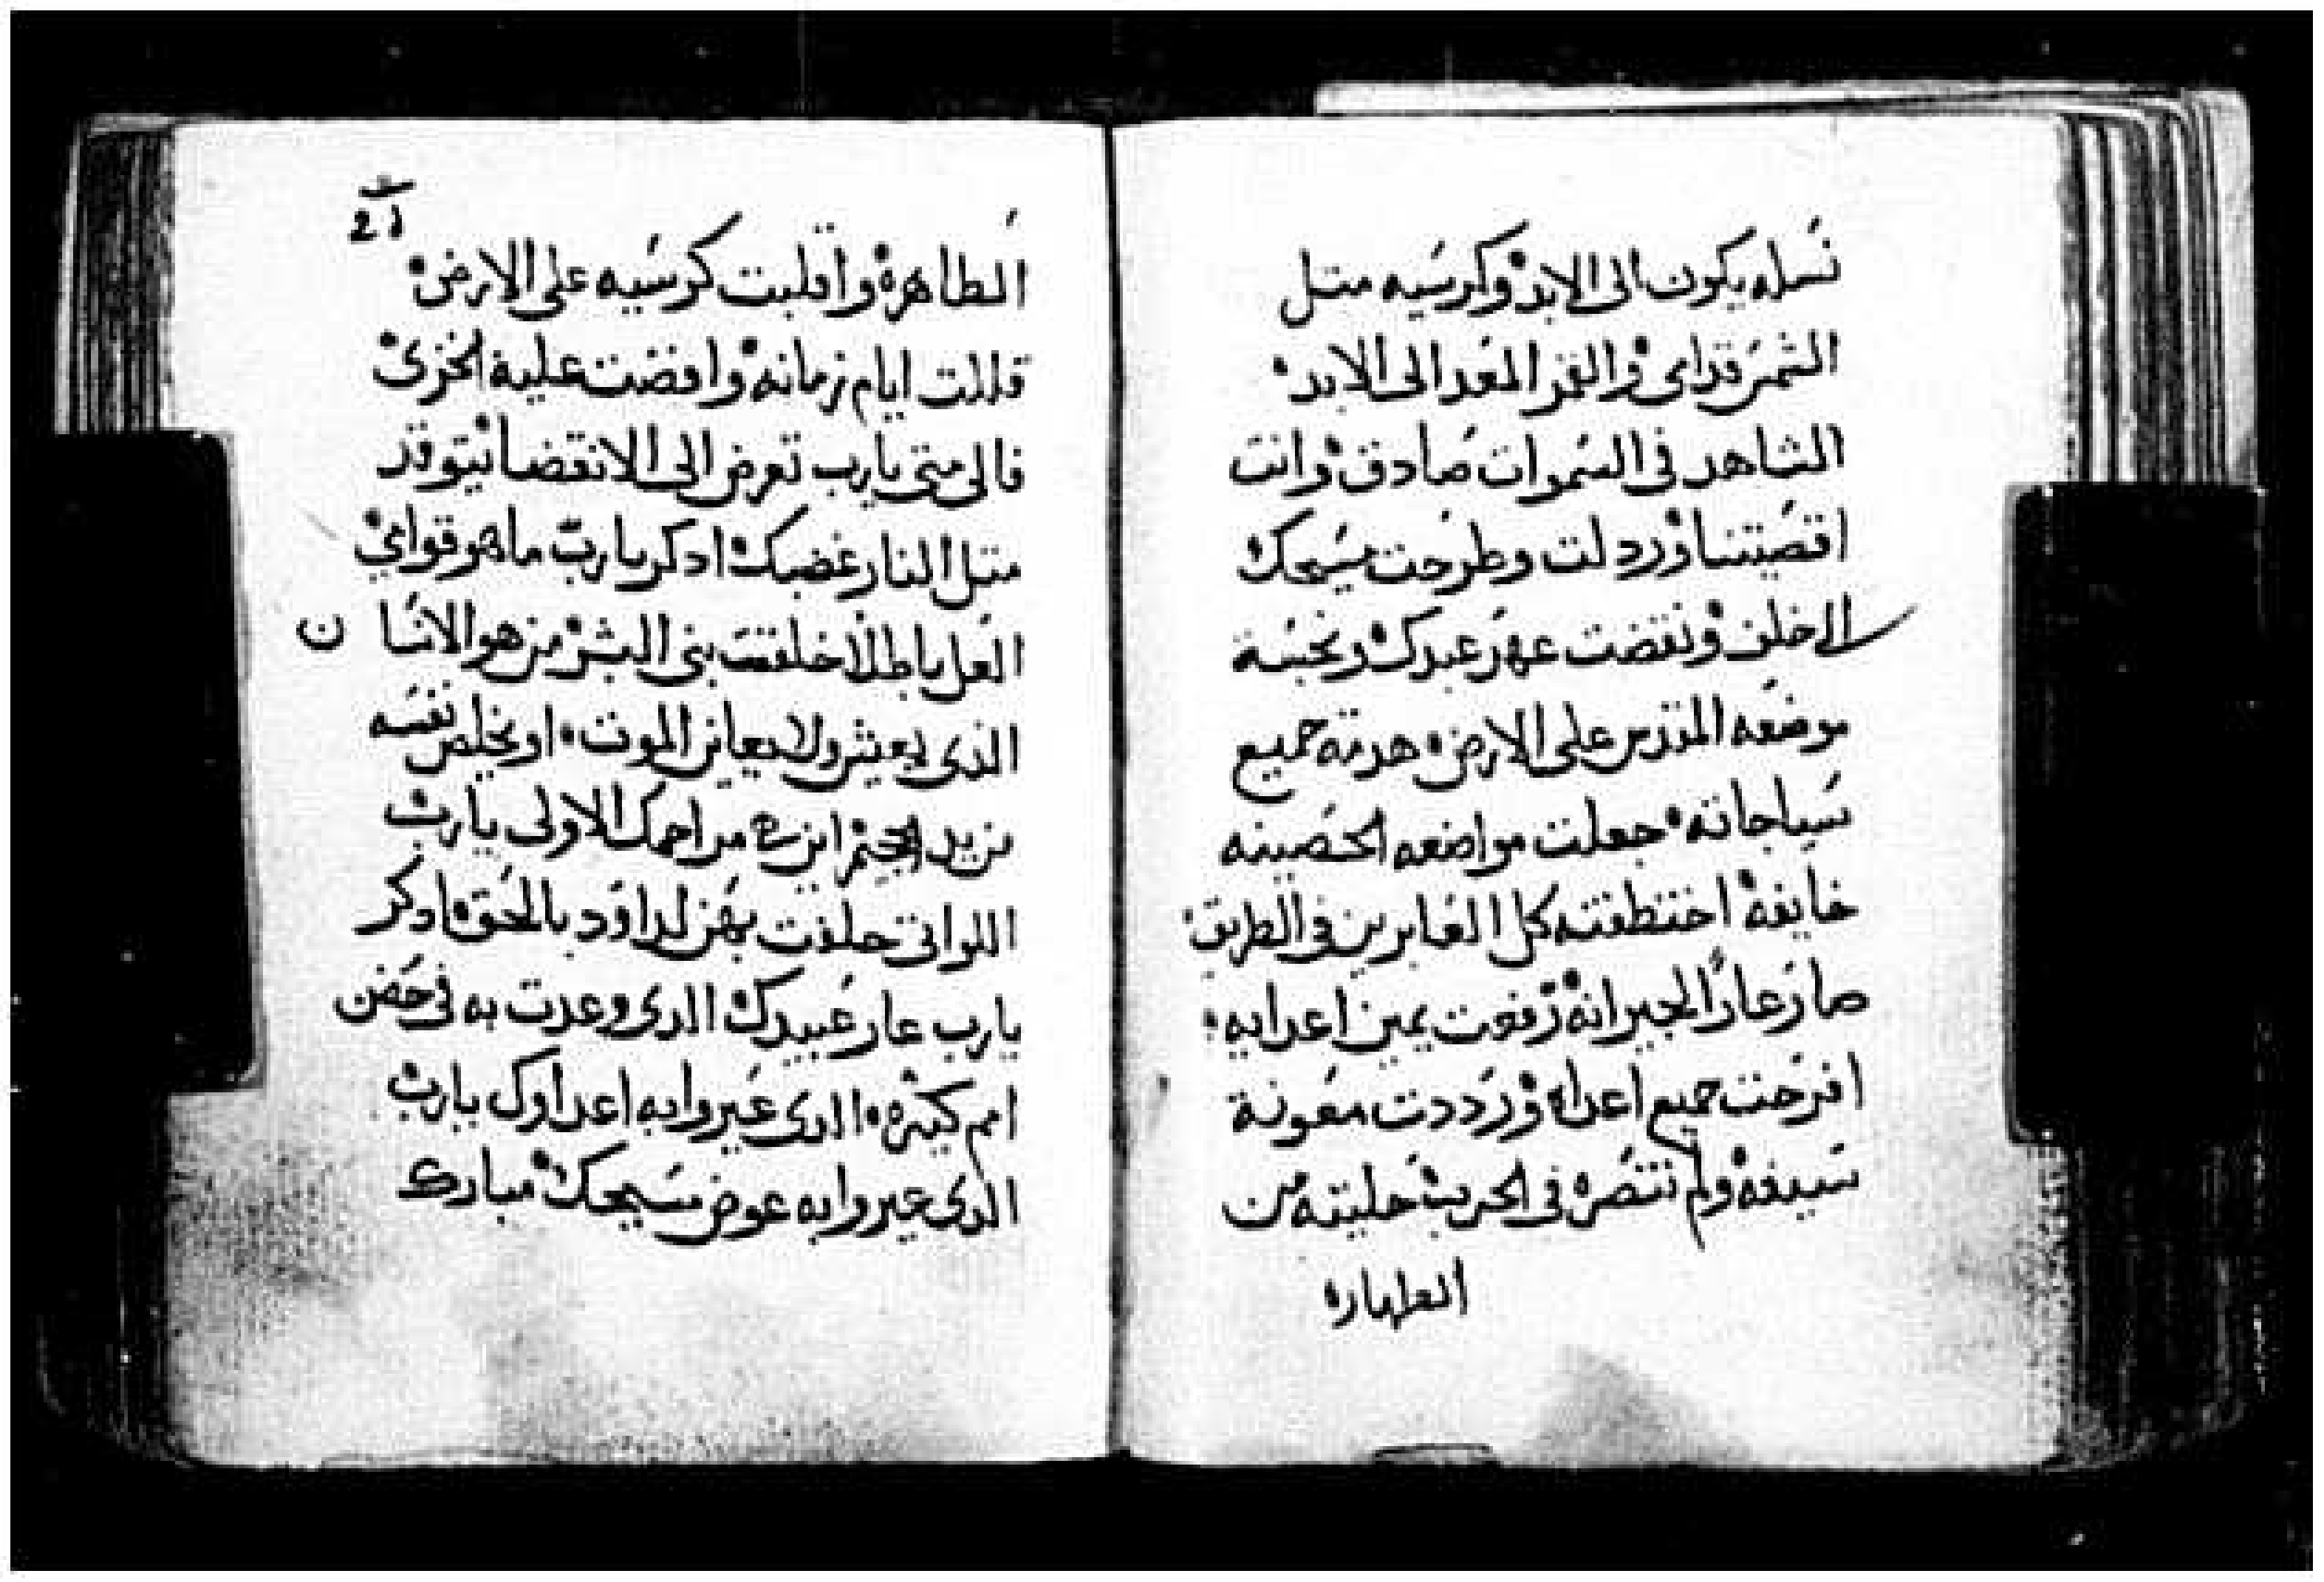 نسله يكون الى الابد وكرسيه متل
الشمس قدامى والقمر المعد الى الابد
الشاهد فى السموات صادق وانت
اقصيتنا ورذلت وطرحت مسيحك
ونقضت عهد عبدك ونجسة
موضعه المقدس على الارض هدمة جميع
سياجاته جعلت مواضعه الحصينه
خايفة اختطفته كل العابرين فى الطريق
صار عارًا لجيرانه رفعت يمين اعدايه
افرحت جميع اعداه ورددت معونة
سيفه ولم تنصره فى الحرب حليته من
الطهاره
الطاهره واقلبت كرسيه على الارض
قللت ايام زمانه وافضت عليه الخزى
فالى متى يارب تعرض الى الانقضا يتوقد
متل النار غضبك ادكر يارب ما هو قوامى
العل باطلا خلقت بنى البشر من هو الانسان
الذى يعيش ولا يعاين الموت او يخلص نفسه
من يد الجحيم اين هى مراحمك الاولى يارب
اللواتى حلفت بهن لداود بالحق ادكر
يارب عار عبيدك الدى وعدت به فى حضن
امم كتيره الدى عيروا به اعداوك يارب
الدى عيروا به عوض مسيحك مبارك